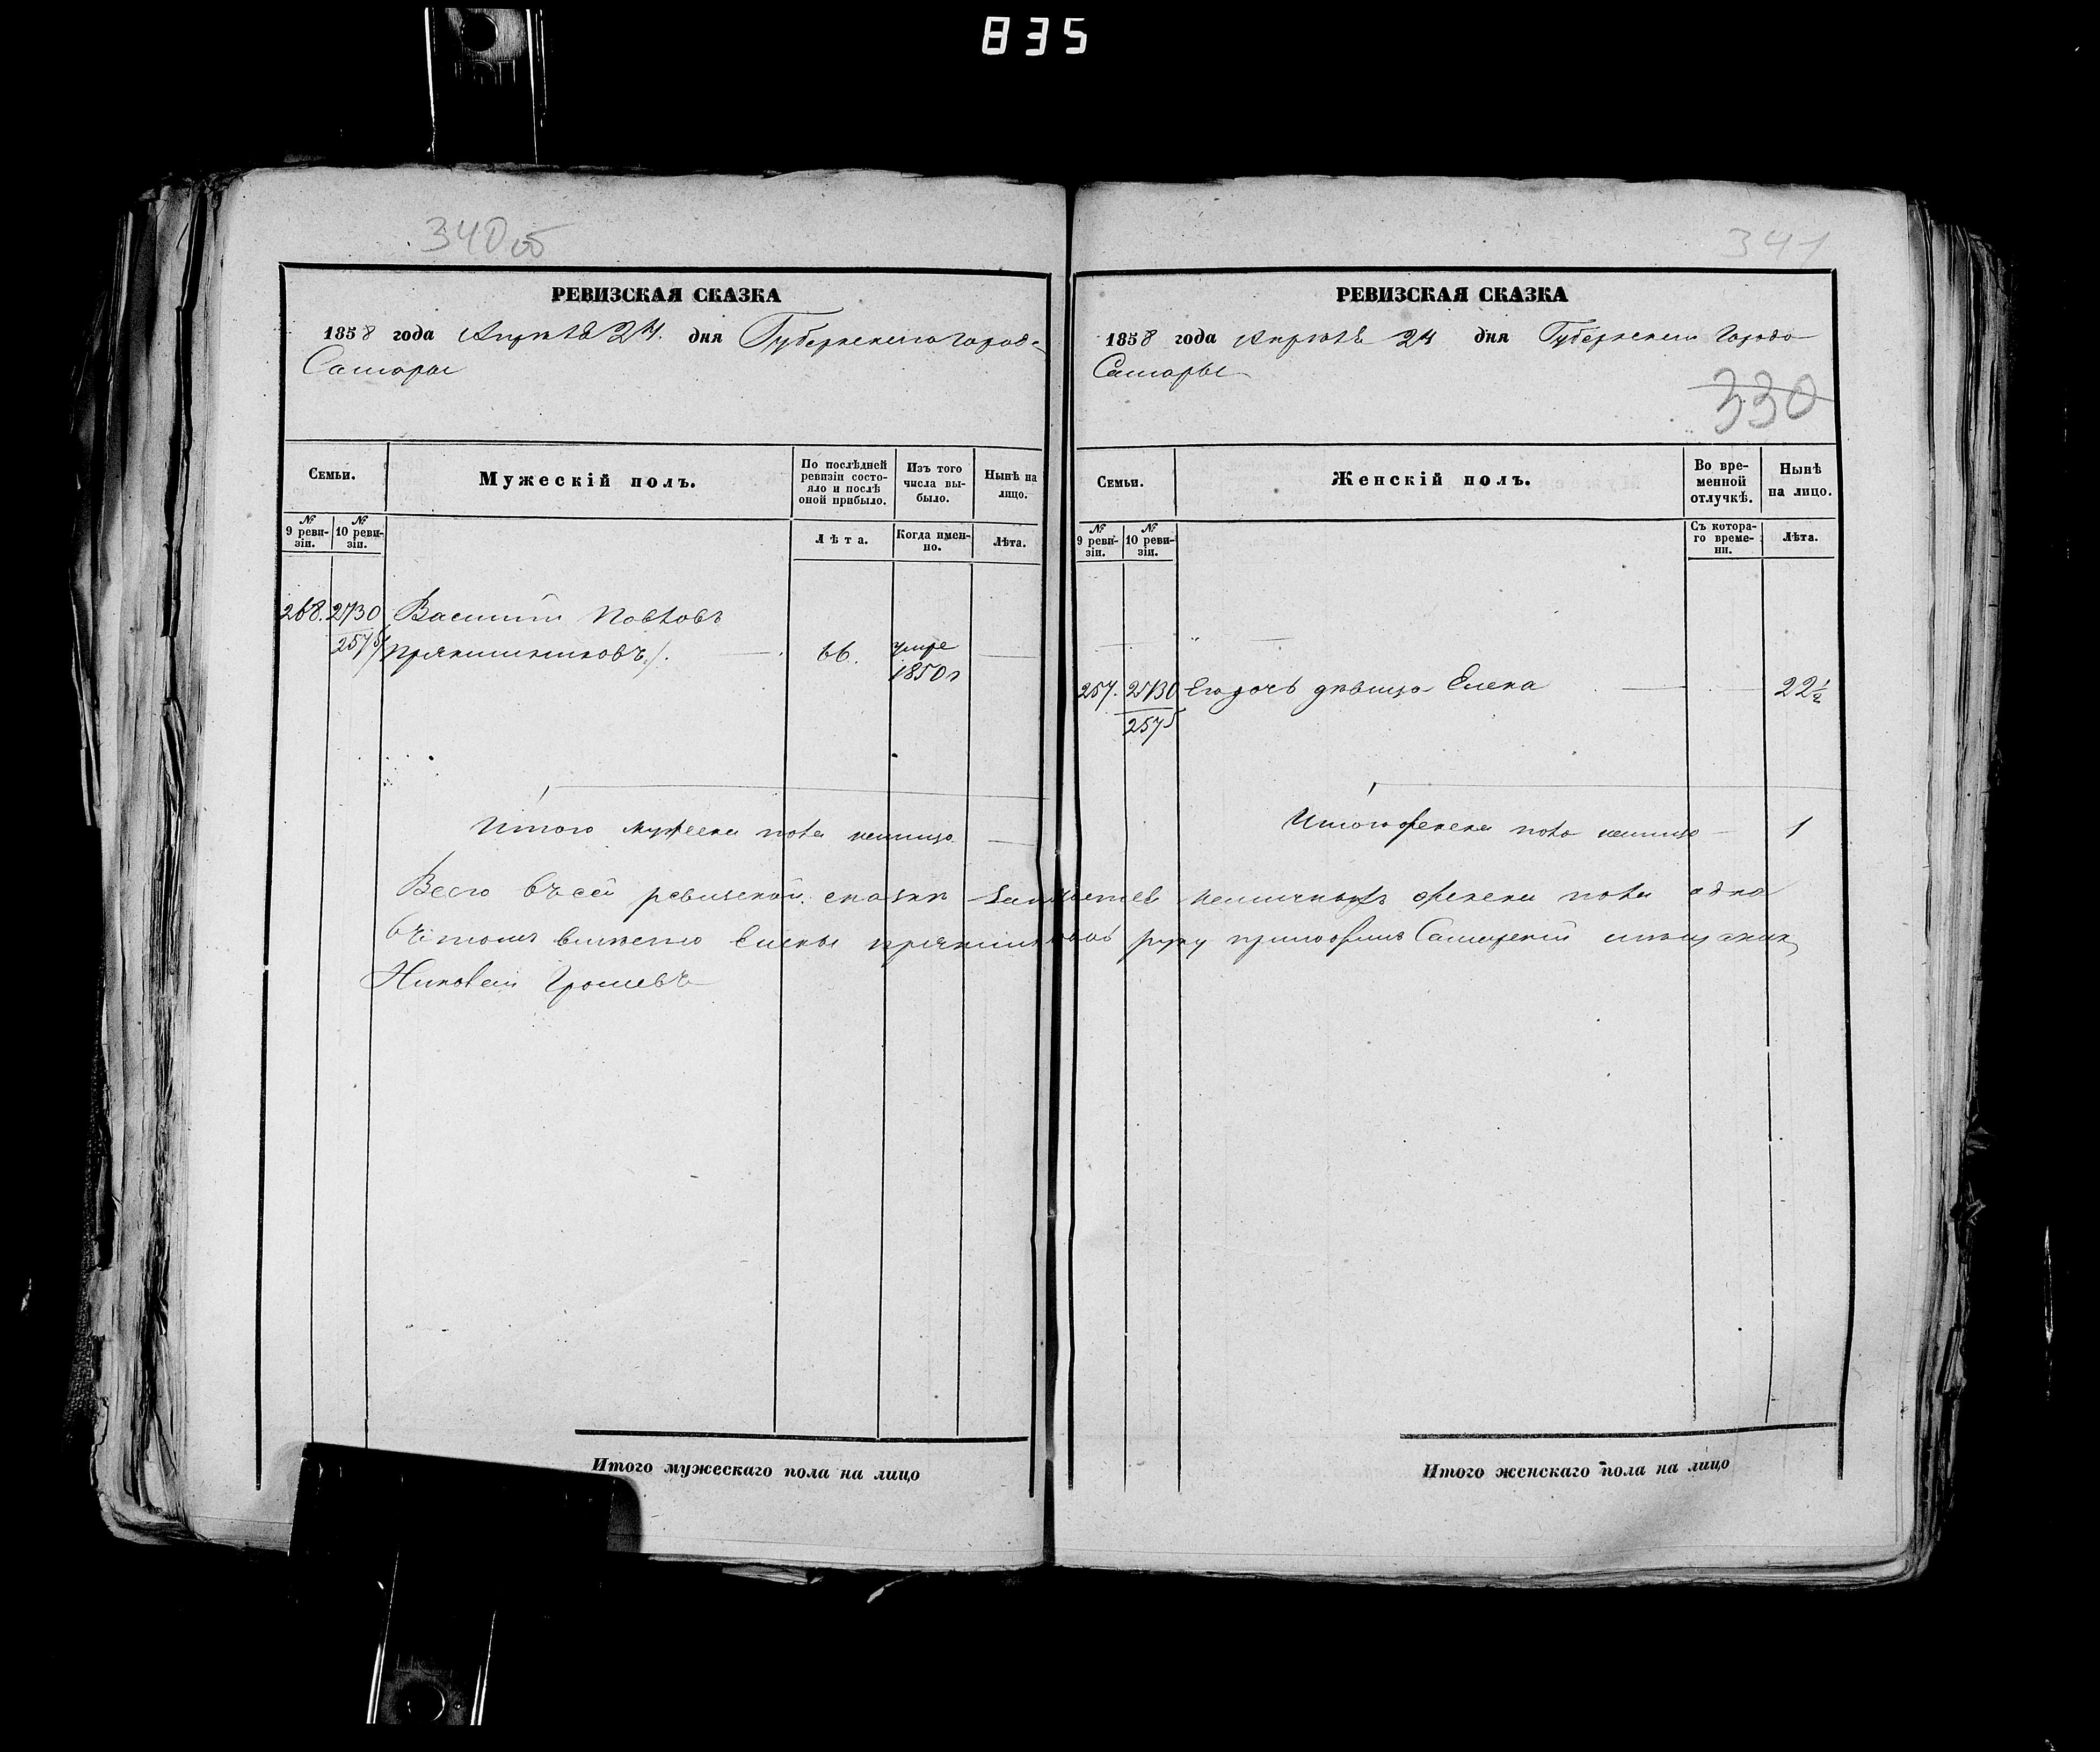 835
340об
РЕВИЗСКАЯ СКАЗКА
1858 года Апреля 24. дня Губернскаго города
Самары
Семьи.
Мужескій полъ.
По послѣдней ревизіи состояло и послѣ оной прибыло.
Изъ того числа выбыло.
Нынѣ на лицо.
№ 9 ревизіи.
№ 10 ревизіи.
Лѣта.
Когда именно.
Лѣта.
268. 2730 Василий Павловъ
2575 Прянишниковъ 66. умре
1850г
Итого мужеска пола налицо
Итого мужескаго пола на лицо
341
РЕВИЗСКАЯ СКАЗКА
1858 года Апреля 24 дня Губернскаго города
Самары
330
Семьи.
Женскій полъ.
Во временной отлучкѣ.
Нынѣ на лицо.
№ 9 ревизіи.
№ 10 ревизіи.
Съ котораго времени.
Лѣта.
257. 2730 Его дочь дѣвица Елена 22½
2575
Итого женска пола налицо 1
Всего въ сей ревизской сказки наличныхъ женска пола одна
Елены Прянишниковой руку приложилъ Самарской мѣщанин
Николай
Итого женскаго пола на лицо